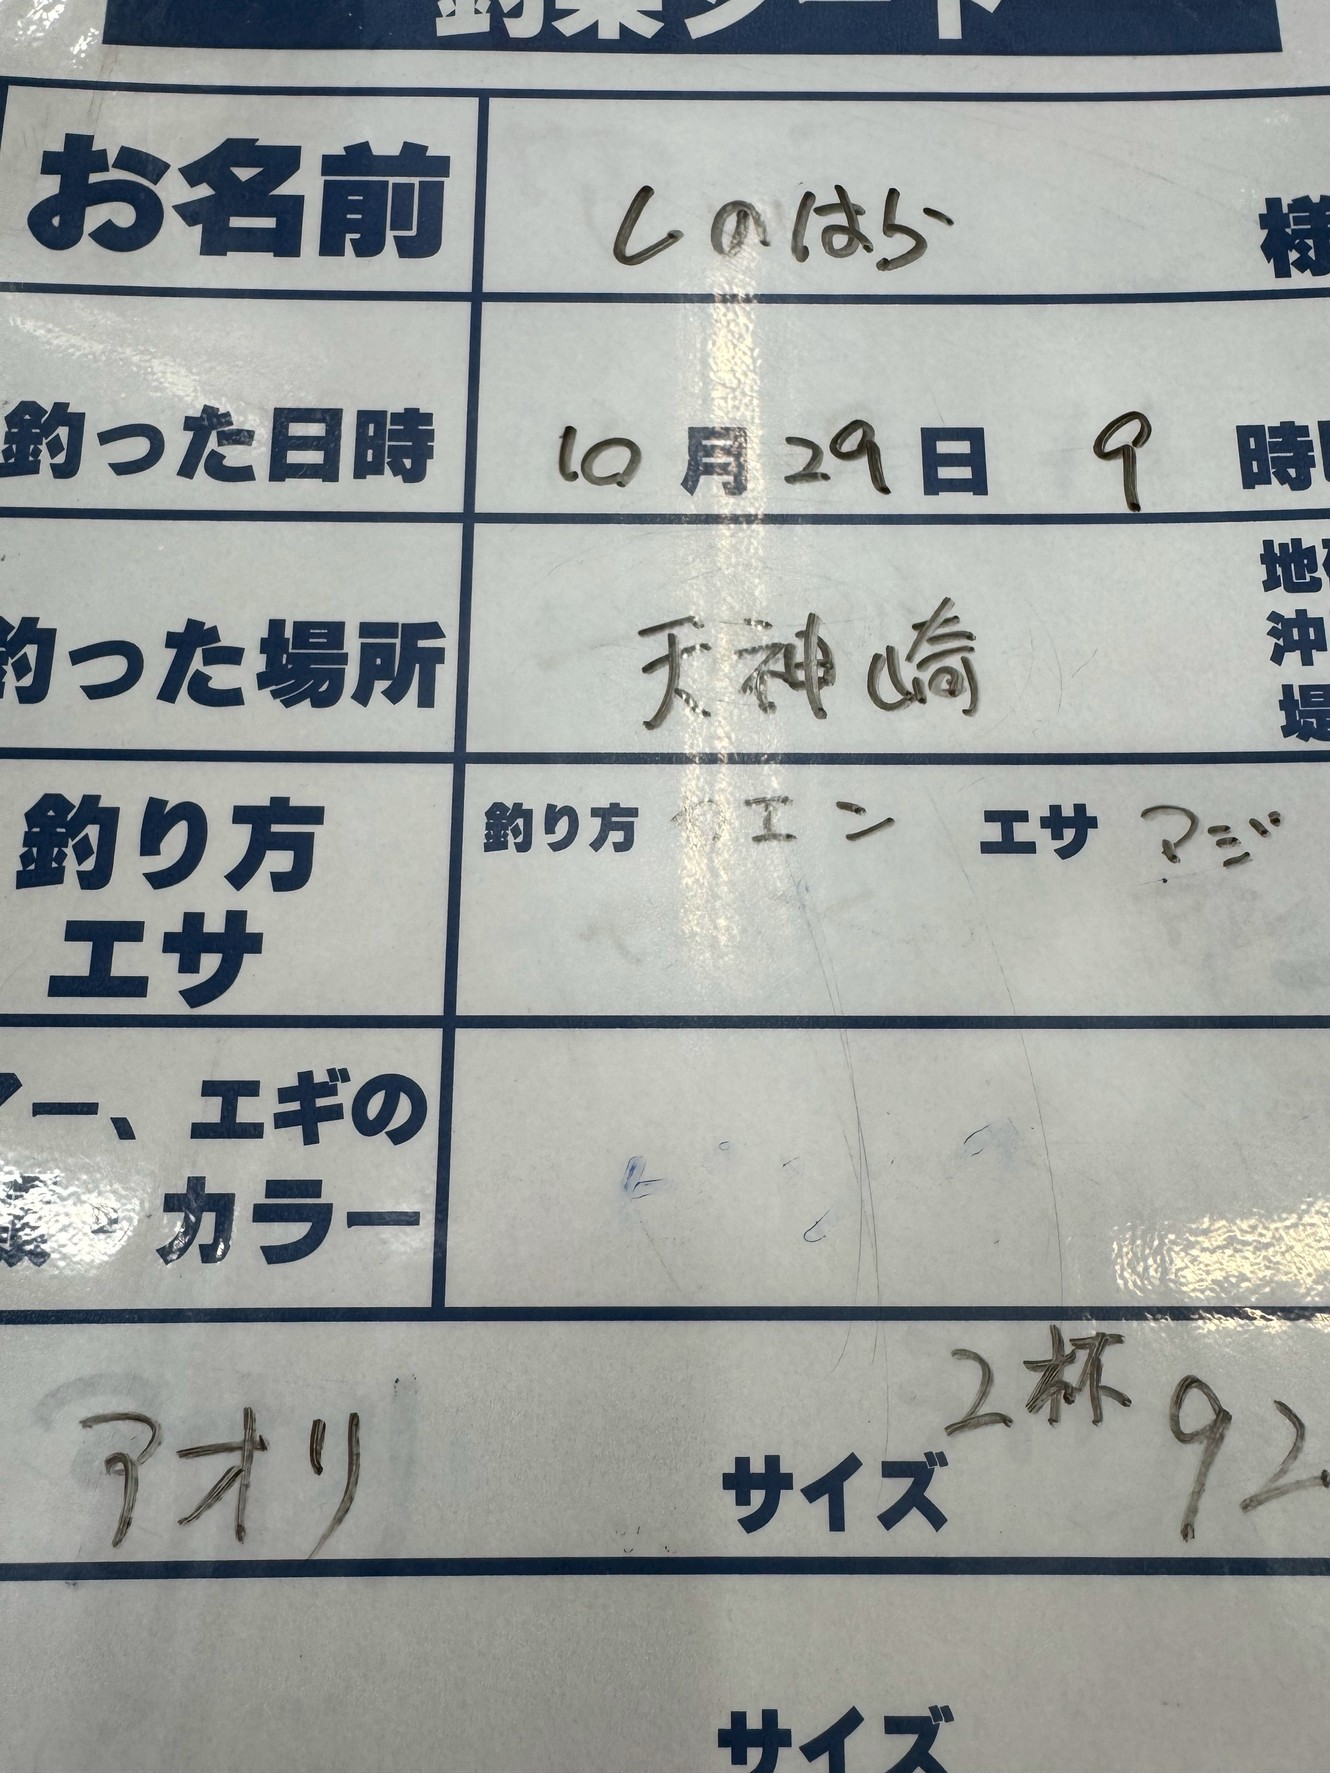 釣果シート
お名前 しのはら 様
釣った日時 10月29日 9 時
釣った場所 天神崎
地
沖
堤
釣り方 ウエン エサ アジ
釣り方
エサ
アー、エギの
カラー
アオリ サイズ 2杯 92
サイズ